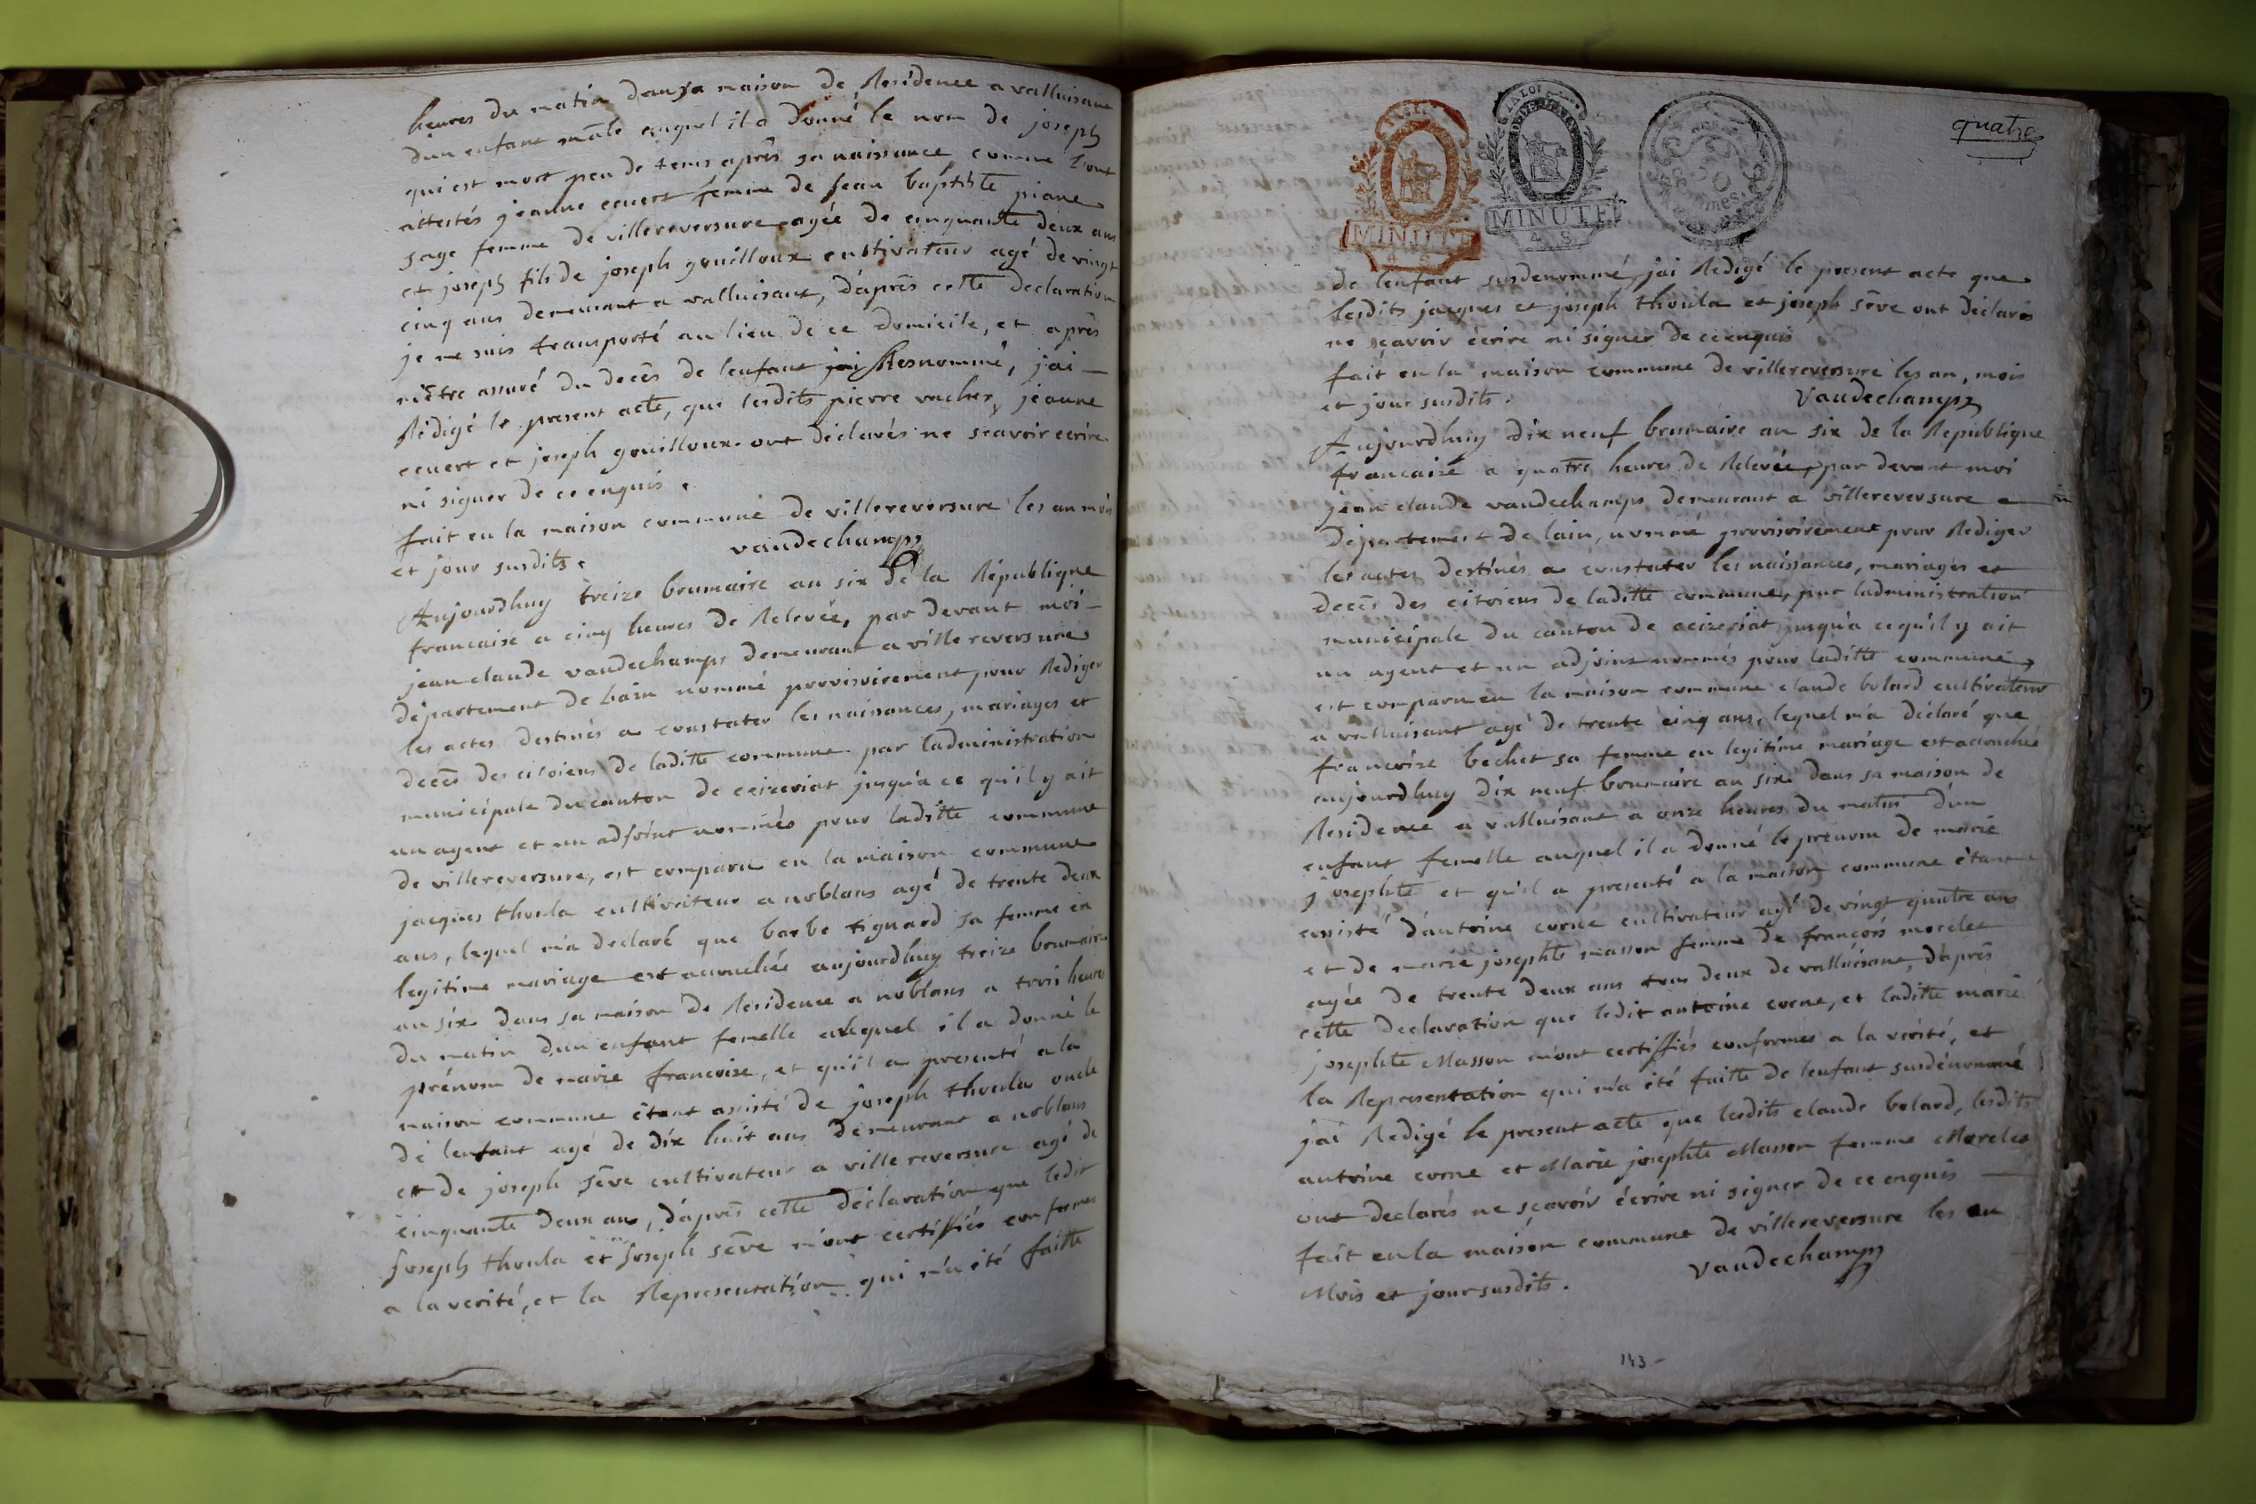 heures du matin dans sa maison de Residence a valluisant
dun enfant mâle auquel il a donné le nom de joseph
qui est mort peu de tems aprês sa naissance comme l'ont
attestés jeanne ecuert femme de jean baptiste piane
sage femme de villereversure agée de cinquante deux ans
et joseph fils de joseph gouilloux cultivateur agé de vingt
cinq ans demeurant a valluisant, d'aprês cette declaration
je me suis transporté au lieu de ce domicile, et aprês
m'être assuré du decês de lenfant jai susnommé, j'ai
Rédigé le present acte, que lesdits pierre vacher, jeanne
ecuert et joseph gouilloux ont déclarés ne scavoir ecrire
ni signer de ce enquis.
fait en la maison commune de villereversure les an mois
et jour susdits. vaudechamps
Aujourdhuy treize brumaire an six de la République
francaise a cinq heures de Relevée, par devant moi
jean claude vaudechamps demeurant a villereversure
département de lain nommé provisoirement pour Rediger
les actes destinés a constater les naissances, mariages et
decês des citoiens de laditte commune par ladministration
municipale du canton de ceizeriat jusqu'a ce qu'il y ait
un agent et un adjoint nommés pour laditte commune
de villereversure, est comparu en la maison commune
jacques thoula cultivateur a noblans agé de trente deux
ans, lequel m'a declaré que barbe tignard sa femme en
legitime mariage est acouchée aujourdhuy treize brumaire
an six dans sa maison de Residence a noblans a trois heures
du matin dun enfant femelle auquel il a donné le
prénom de marie francoise, et qu'il a presenté a la
maison commune étant assisté de joseph thoula oncle
de lenfant agé de dix huit ans demeurant a noblans
et de joseph sêve cultivateur a villereversure agé de
cinquante deux ans, d'aprês cette déclaration que ledit
joseph thoula et joseph sêve m'ont certiffiés conformes
a la verité, et la Representation qui m'a été faitte
quatre
MINUTE
MINUTE
de lenfant susdenommé, jai Redigé le present acte que
lesdits jacques et joseph thoula et joseph sêve ont déclarés
ne scavoir écrire ni signer de ce enquis
fait en la maison commune de villereversure les an, mois
et jour susdits. Vaudechamps
Aujourdhuy dix neuf brumaire an six de la Republique
francaise a quatre heures de Relevée, par devant moi
jean claude vaudechamps demeurant a villereversure
département de lain, nommé provisoirement pour Rediger
les actes destinés a constater les naissances, mariages et
decês des citoiens de laditte commune, par ladministration
municipale du canton de ceizeriat jusqu'a ce qu'il y ait
un agent et un adjoint nommés pour laditte commune,
est comparu en la maison commune claude bolard cultivateur
a valluisant agé de trente cinq ans, lequel m'a déclaré que
francoise bechet sa femme en legitime mariage est acouchée
aujourdhuy dix neuf brumaire an six dans sa maison de
Residence a valluisant a onze heures du matin d'un
enfant femelle auquel il a donné le prénom de marie
josephte et qu'il a presenté a la maison commune étant
assisté d'antoine corne cultivateur agé de vingt quatre ans
et de marie josephte masson femme de francois morelet
agée de trente deux ans tous deux de valluisant, d'aprês
cette declaration que ledit antoine corne, et laditte marie
josephte Masson m'ont certiffiés conformes a la vérité, et
la Representation qui m'a été faitte de lenfant susdénommé
j'ai Redigé le present acte que lesdits claude bolard, lesdits
antoine corne et Marie josephte Masson femme Morelet
ont declarés ne scavoir écrire ni signer de ce enquis
fait en la maison commune de villereversure les an
Mois et jour susdits. vaudechamps
143